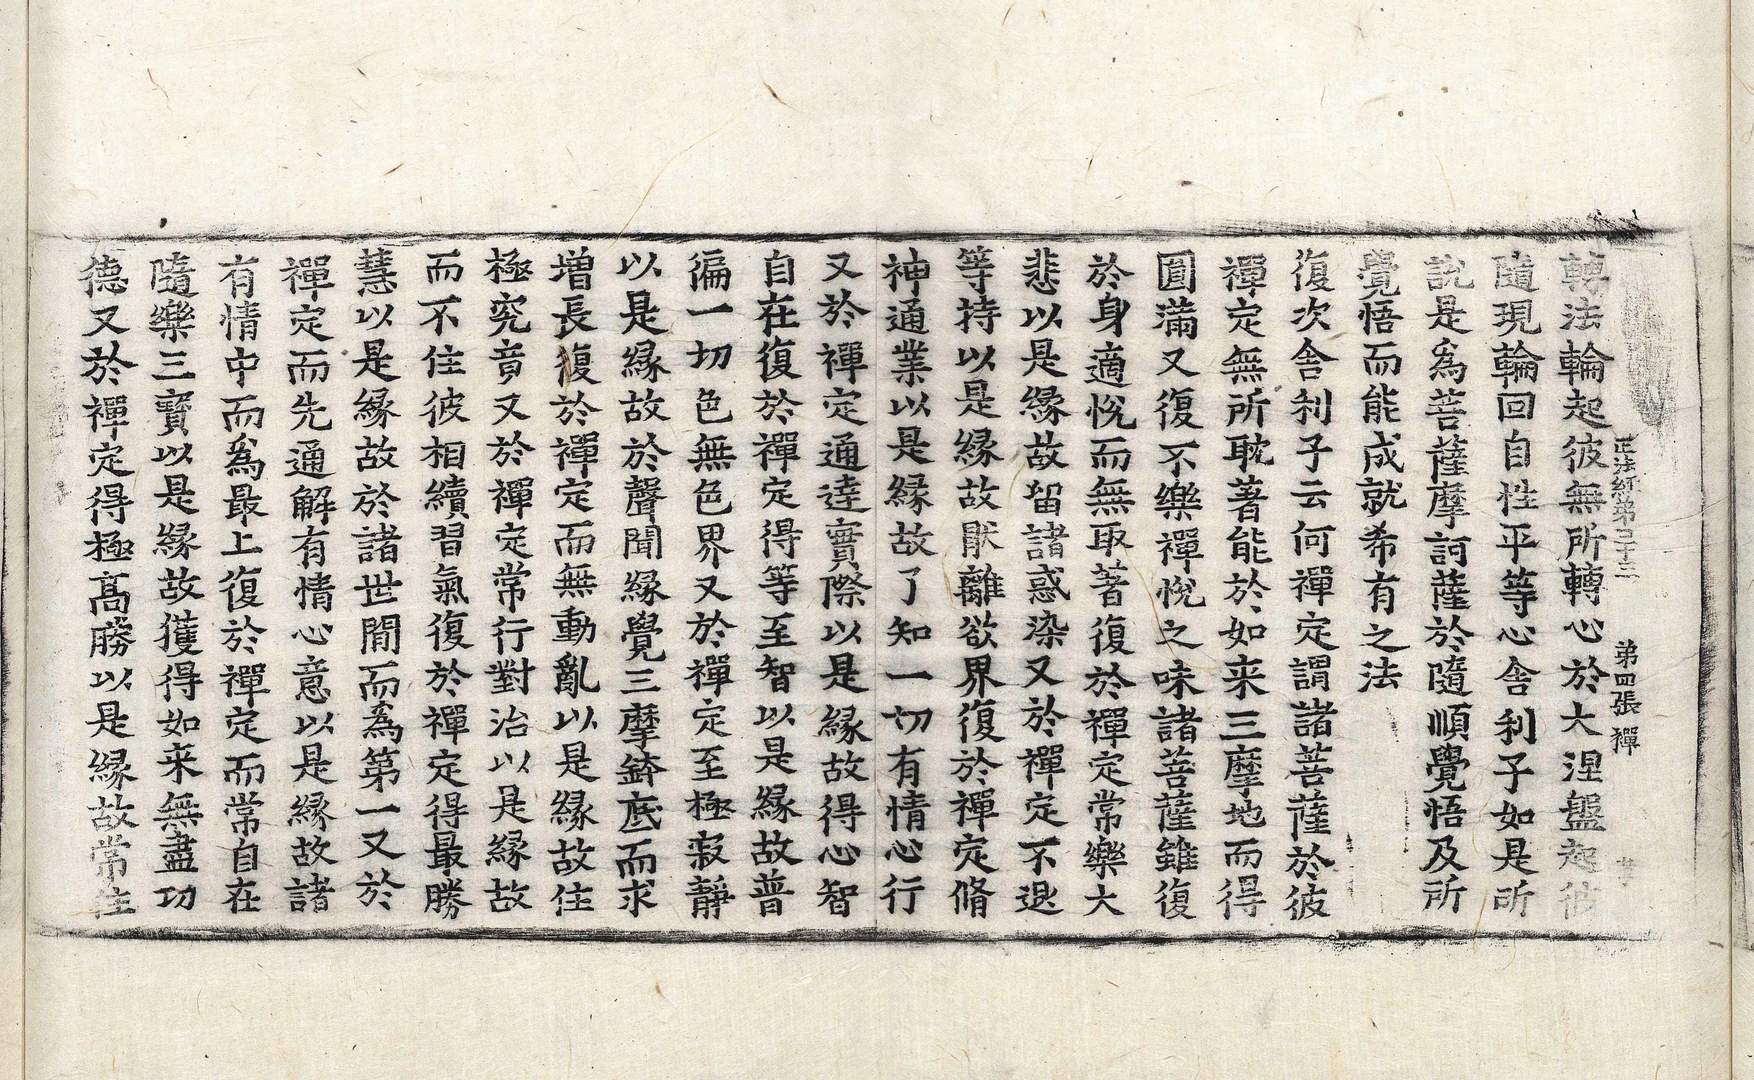 正法經第三十三 第四張 禪
轉法輪起彼無所轉心於大涅盤起彼
隨現輪回自性平等心舍利子如是所
說是爲菩薩摩訶薩於隨順覺悟及所
覺悟而能成就希有之法
復次舍利子云何禪定謂諸菩薩於彼
禪定無所耽著能於如来三摩地而得
圓滿又復不樂禪悅之味諸菩薩雖復
於身適悅而無取著復於禪定常樂大
悲以是緣故留諸惑染又於禪定不退
等持以是緣故猒離欲界復於禪定脩
神通業以是緣故了知一切有情心行
又於禪定通達實際以是緣故得心智
自在復於禪定得等至智以是緣故普
徧一切色無色界又於禪定至極寂靜
以是緣故於聲聞緣覺三摩鉢底而求
增長復於禪定而無動亂以是緣故住
極究竟又於禪定常行對治以是緣故
而不住彼相續習氣復於禪定得最勝
慧以是緣故於諸世閒而爲第一又於
禪定而先通解有情心意以是緣故諸
有情中而爲最上復於禪定而常自在
隨樂三寶以是緣故獲得如来無盡功
德又於禪定得極高勝以是緣故常住